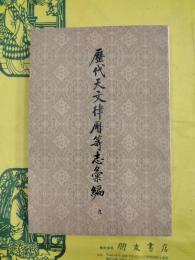 歷代天文律曆等志彙編
九
朋友書店